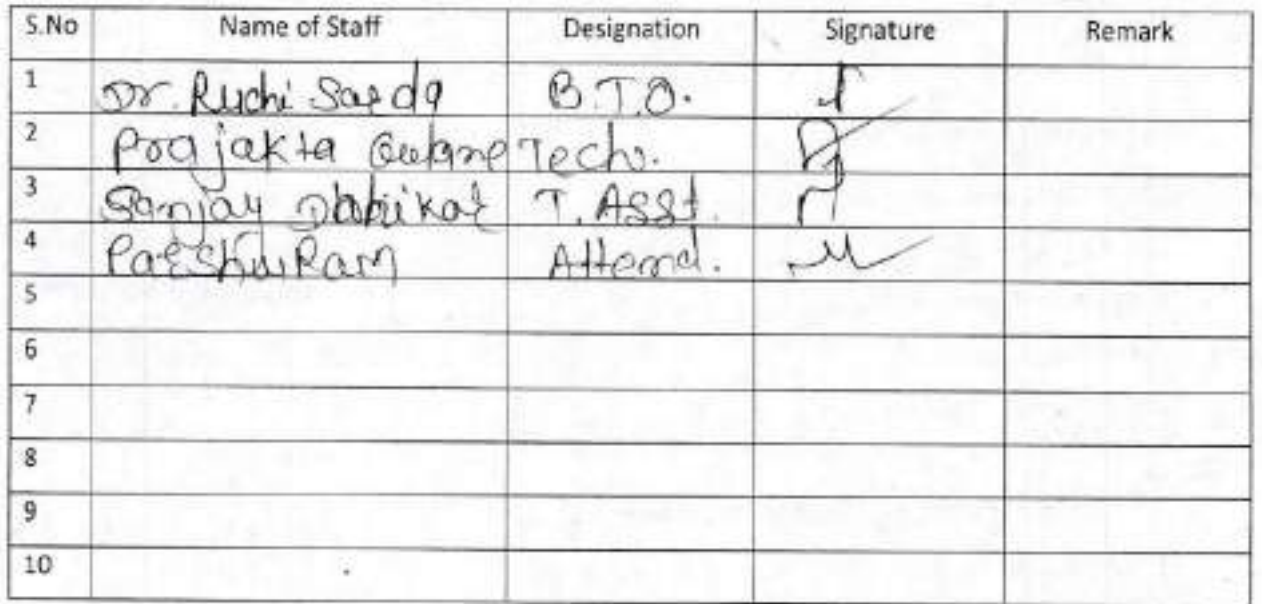 S.No Name of Staff Designation Signature Remark
1 Dr. Ruchi Sarda B.T.O.
2 Prajakta Tech.
3 Sanjay T. Asst.
4 Parshuram Attend.
5
6
7
8
9
10